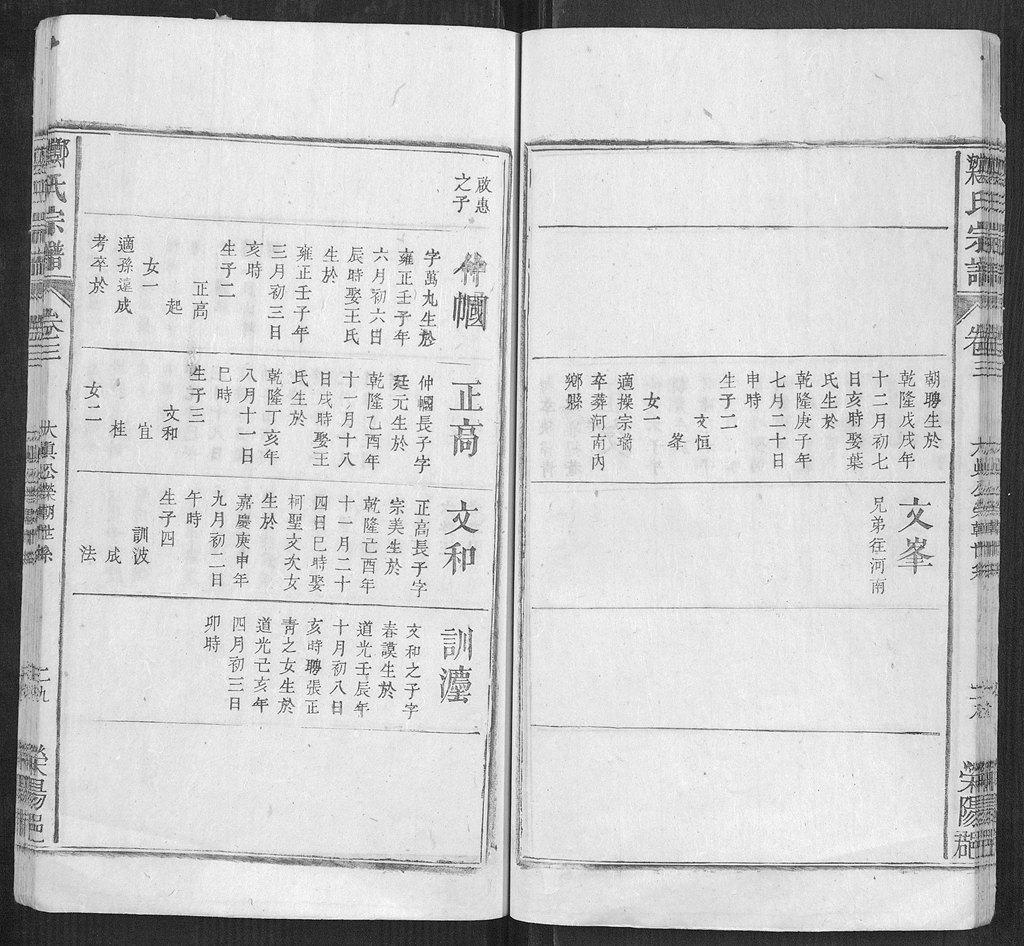 鄭氏宗譜
卷三
滎陽郡
朝聘生於
乾隆戊戌年
十二月初七
日亥時娶葉
氏生於
乾隆庚子年
七月二十日
申時
生子二
文恒
峯
女一
適操宗瑞
卒葬河南內
鄉縣
文峯
兄弟往河南
啟惠
之子
仲幗
字萬九生於
雍正壬子年
六月初六日
辰時娶王氏
生於
雍正壬子年
三月初三日
亥時
生子二
正高
起
女一
適孫達成
考卒於
正高
仲幗長子字
廷元生於
乾隆乙酉年
十一月十八
日戌時娶王
氏生於
乾隆丁亥年
八月十一日
巳時
生子三
文和
宜
桂
女二
文和
正高長子字
宗美生於
乾隆己酉年
十一月二十
四日巳時娶
柯聖文次女
生於
嘉慶庚申年
九月初二日
午時
生子四
訓波
成
法
訓瀍
文和之子字
春謨生於
道光壬辰年
十月初八日
亥時聘張正
青之女生於
道光己亥年
四月初三日
卯時
鄭氏宗譜
卷三
大慎公榮朝世系
二九
滎陽郡